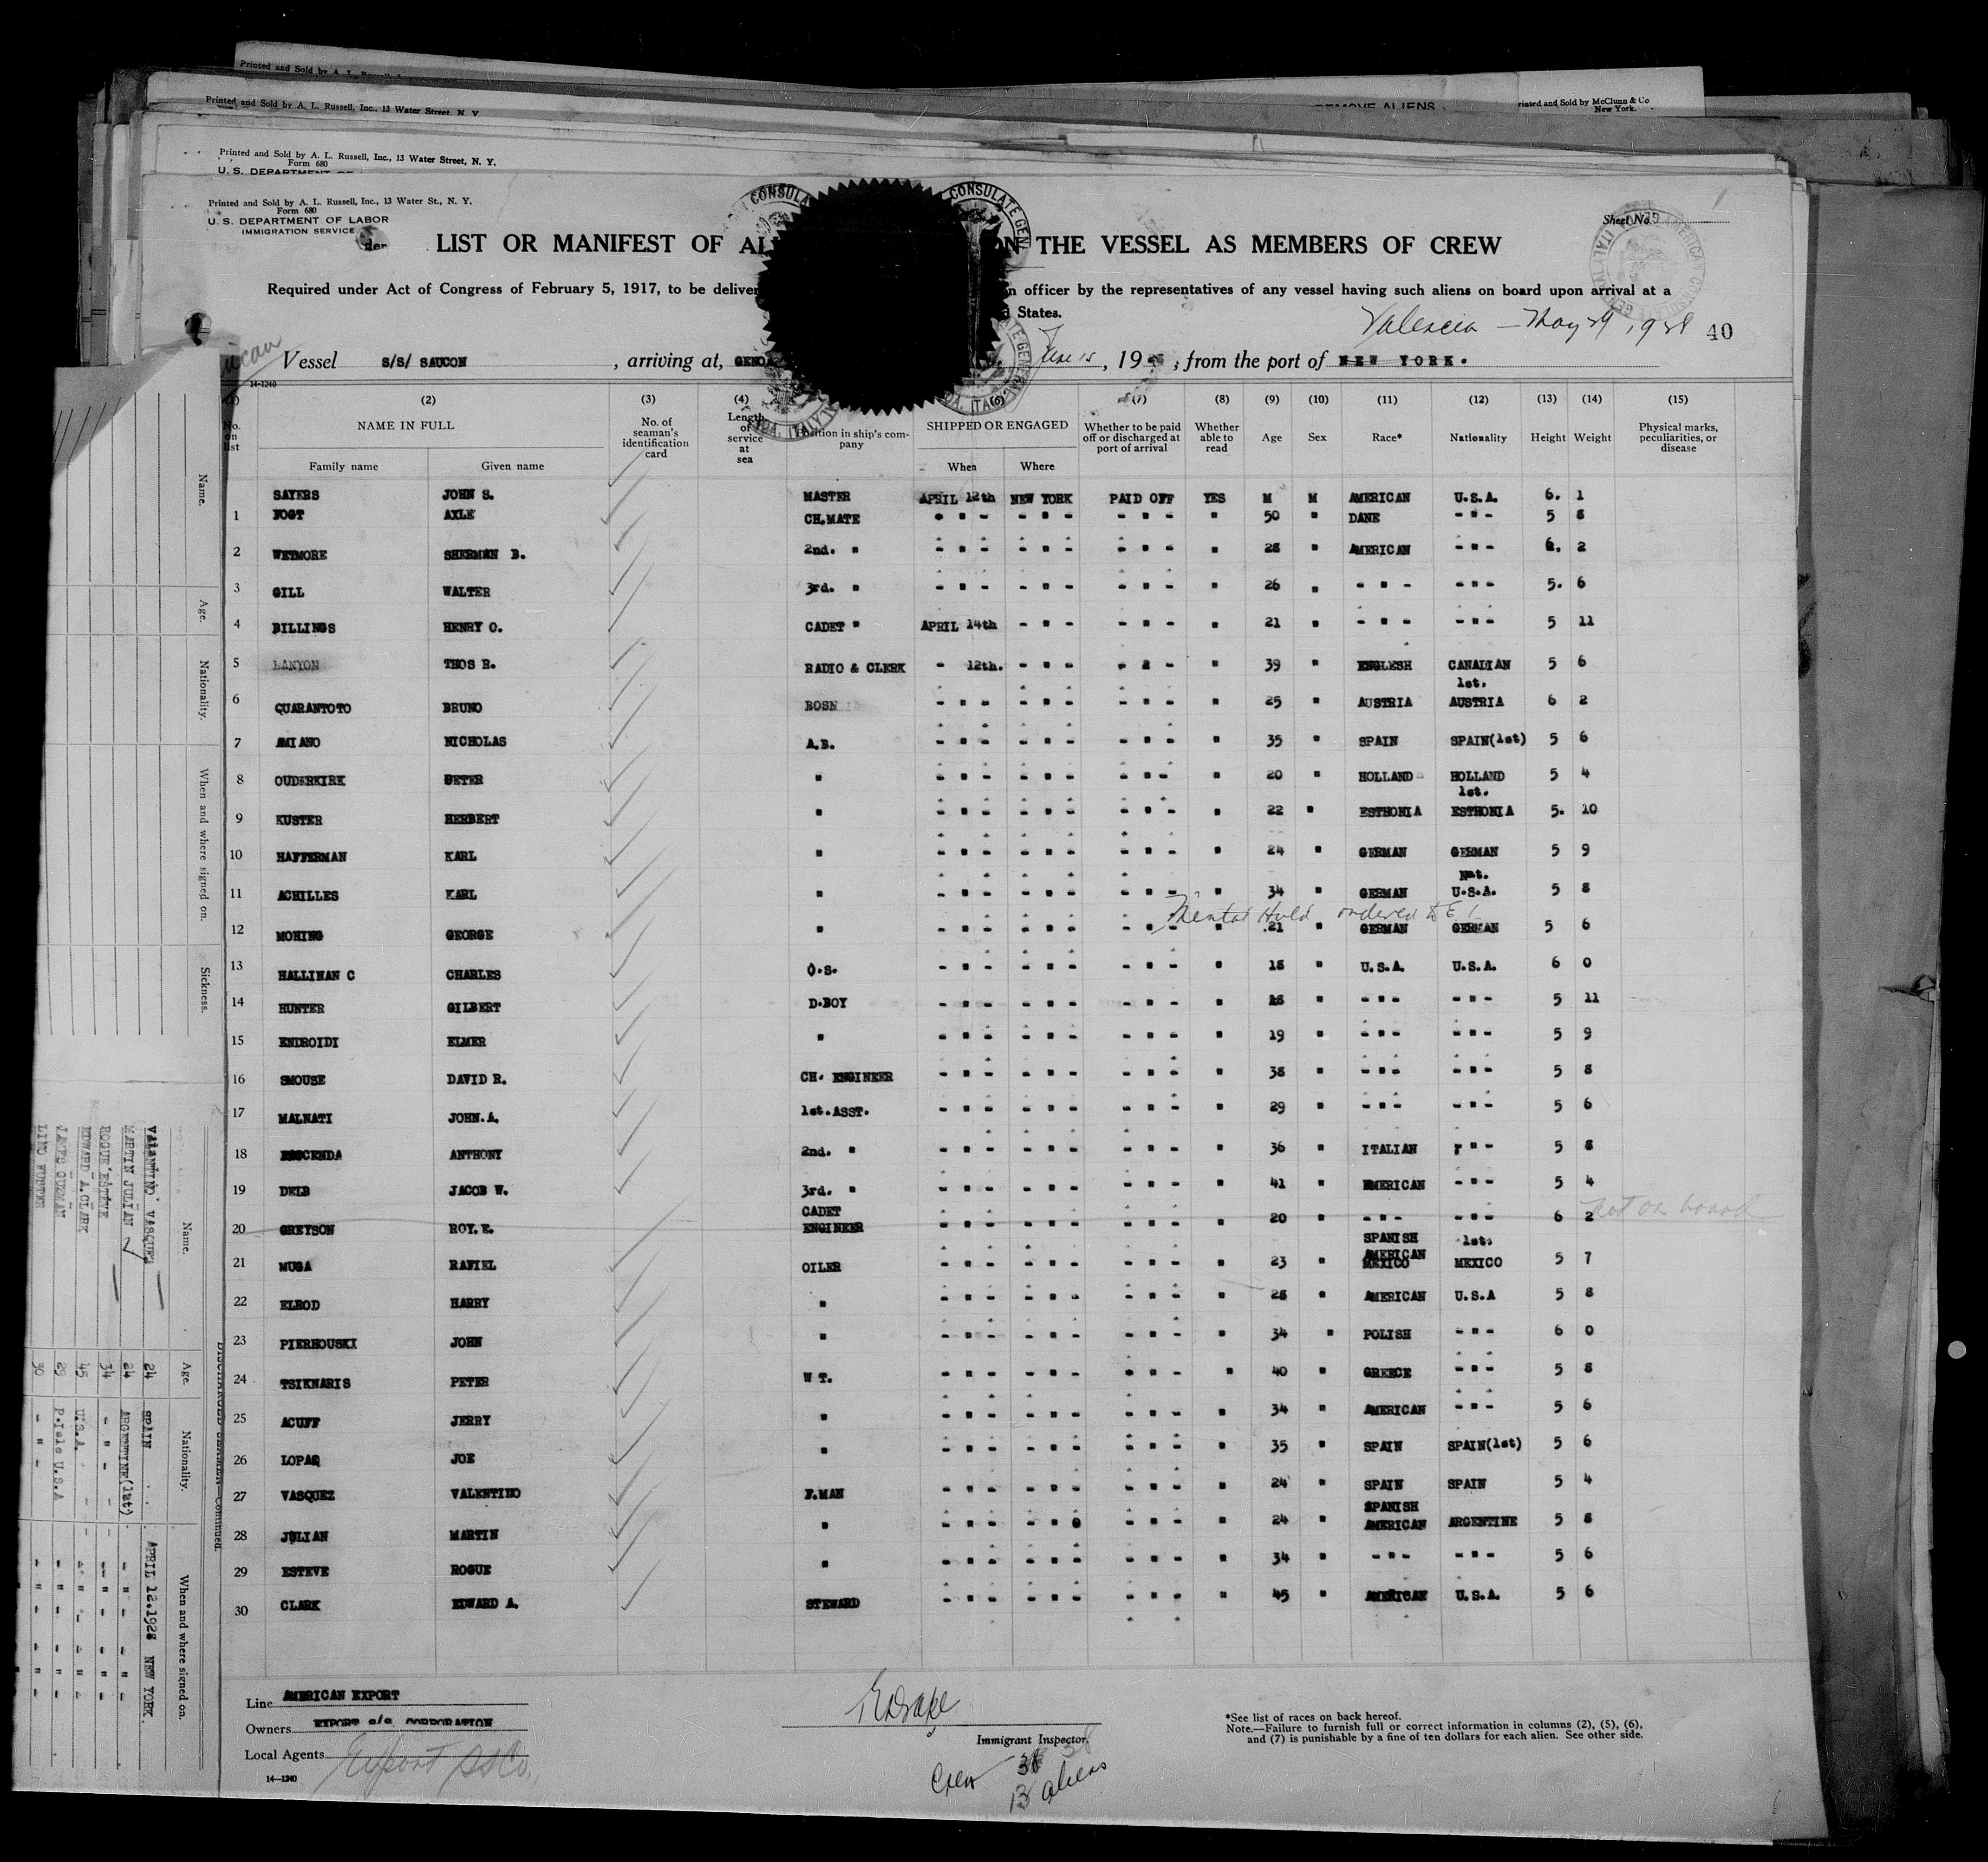 Printed and Sold by A. L. Russell, Inc., 13 Water Street, N. Y.
REMOVE ALIENS
Printed and Sold by McClunn & Co
New York.
Printed and Sold by A. L. Russell, Inc., 13 Water Street, N. Y.
Form 680
U. S. DEPARTMENT OF
Printed and Sold by A. L. Russell, Inc., 13 Water St., N. Y.
Form 680
U. S. DEPARTMENT OF LABOR
IMMIGRATION SERVICE
Sheet No.
LIST OR MANIFEST OF AL ON THE VESSEL AS MEMBERS OF CREW
Required under Act of Congress of February 5, 1917, to be deliver n officer by the representatives of any vessel having such aliens on board upon arrival at a
d States.
Valencia - May 29, 1928 40
Vessel S/S/ SAUCON , arriving at, GENOA June 15 , 19 , from the port of NEW YORK.
14-1240
(2) (3) (4) (6) (7) (8) (9) (10) (11) (12) (13) (14) (15)
No. on list NAME IN FULL No. of seaman's identification card Length of service at sea Position in ship's company SHIPPED OR ENGAGED Whether to be paid off or discharged at port of arrival Whether able to read Age Sex Race* Nationality Height Weight Physical marks, peculiarities, or disease
Family name Given name When Where
SAYERS JOHN S. MASTER APRIL 12th NEW YORK PAID OFF YES M M AMERICAN U.S.A. 6. 1
1 FOGT AXLE CH.MATE - " - - " - - " - " 50 " DANE - " - 5 8
2 WETMORE SHERMAN B. 2nd. " - " - - " - - " - " 28 " AMERICAN - " - 6. 2
3 GILL WALTER 3rd. " - " - - " - - " - " 26 " - " - - " - 5. 6
4 BILLINGS HENRY O. CADET " APRIL 14th - " - - " - " 21 " - " - - " - 5 11
5 LANYON THOS R. RADIO & CLERK - 12th. - " - - " - " 39 " ENGLESH CANADIAN 5 6
6 QUARANTOTO BRUNO BOSN - " - - " - - " - " 25 " AUSTRIA 1st. AUSTRIA 6 2
7 AMIANO NICHOLAS A.B. - " - - " - - " - " 35 " SPAIN SPAIN(1st) 5 6
8 OUDERKIRK PETER " - " - - " - - " - " 20 " HOLLAND HOLLAND 5 4
9 KUSTER HERBERT " - " - - " - - " - " 22 " ESTHONIA 1st. ESTHONIA 5. 10
10 HAFFERMAN KARL " - " - - " - - " - " 24 " GERMAN GERMAN 5 9
11 ACHILLES KARL " - " - - " - - " - " 34 " GERMAN Nat. U.S.A. 5 8
Mental Hold ordered to E.I.
12 MOHING GEORGE " - " - - " - - " - " 21 " GERMAN GERMAN 5 6
13 HALLINAN C CHARLES O.S. - " - - " - - " - " 18 " U.S.A. U.S.A. 6 0
14 HUNTER GILBERT D.BOY - " - - " - - " - " 18 " - " - - " - 5 11
15 ENDROIDI ELMER " - " - - " - - " - " 19 " - " - - " - 5 9
16 SMOUSE DAVID R. CH. ENGINEER - " - - " - - " - " 38 " - " - - " - 5 8
17 MALNATI JOHN.A. 1st.ASST. - " - - " - - " - " 29 " - " - - " - 5 6
18 ANTHONY 2nd. " - " - - " - - " - " 36 " ITALIAN - " - 5 8
19 DELB JACOB W. 3rd. " - " - - " - - " - " 41 " AMERICAN - " - 5 4
20 GREYSON ROY.E. CADET ENGINEER - " - - " - - " - " 20 " - " - - " - 6 2 not on board
21 MUGA RAFIEL OILER - " - - " - - " - " 23 " SPANISH AMERICAN MEXICO 1st. MEXICO 5 7
22 ELROD HARRY " - " - - " - - " - " 28 " AMERICAN U.S.A 5 8
23 PIERHOUSKI JOHN " - " - - " - - " - " 34 " POLISH - " - 6 0
24 TSIKNARIS PETER W T. - " - - " - - " - " 40 " GREECE - " - 5 8
25 ACUFF JERRY " - " - - " - - " - " 34 " AMERICAN - " - 5 6
26 LOPAQ JOE " - " - - " - - " - " 35 " SPAIN SPAIN(1st) 5 6
27 VASQUEZ VALENTINO F.MAN - " - - " - - " - " 24 " SPAIN SPAIN 5 4
28 JULIAN MARTIN " - " - - " - - " - " 24 " SPANISH AMERICAN ARGENTINE 5 8
29 ESTEVE ROGUE " - " - - " - - " - " 34 " - " - - " - 5 6
30 CLARK EDWARD A. STEWARD - " - - " - - " - " 45 " AMERICAN U.S.A. 5 6
Line AMERICAN EXPORT
Owners EXPORT S/S. CORPORATION
Local Agents Export SS Co.
14-1240
Immigrant Inspector.
Crew 38 38
13 aliens
*See list of races on back hereof.
Note.—Failure to furnish full or correct information in columns (2), (5), (6),
and (7) is punishable by a fine of ten dollars for each alien. See other side.
Name. Age. Nationality. When and where signed on. Sickness.
DISCHARGED SEAMEN—Continued.
Name. Age. Nationality. When and where signed on.
VALENTINO VASQUEZ 24 SPAIN APRIL 12.1928 NEW YORK.
MARTIN JULIAN 24 ARGENTINE(1st) - " - - " -
ROGUE ESTEVE 34 - " - - " - - " -
EDWARD A.CLARK 45 U.S.A. - " - - " -
JAMES GUZMAN 29 P.Isle U.S.A - " - - " -
LINO FUSTER 30 - " - - " - - " -